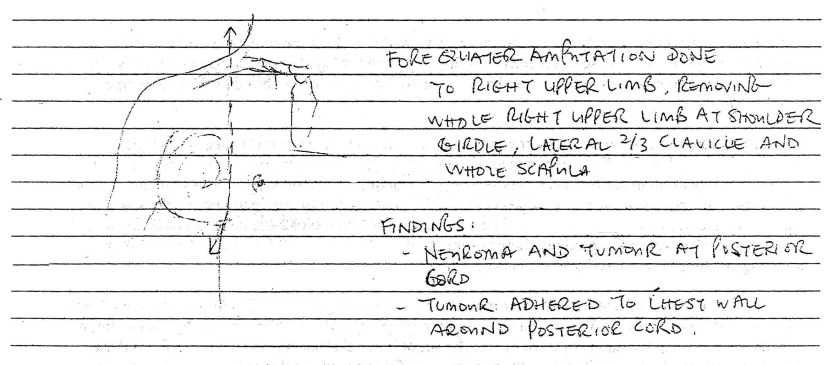 FOREQUATER AMPUTATION DONE
TO RIGHT UPPER LIMB, REMOVING
WHOLE RIGHT UPPER LIMB AT SHOULDER
GIRDLE, LATERAL 2/3 CLAVICLE AND
WHOLE SCAPULA
FINDINGS:
- NEUROMA AND TUMOUR AT POSTERIOR
CORD
- TUMOUR ADHERED TO CHEST WALL
AROUND POSTERIOR CORD.